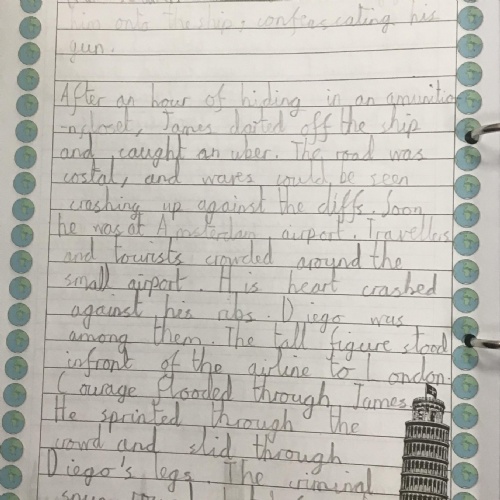 him onto the ship; confenscating his
gun.
After an hour of hiding in an amunitio
-n closet, James darted off the ship
and caught an uber. The road was
costal, and waves could be seen
crashing up against the cliffs. Soon
he was at Amsterdam airport. Travellers
and tourists crowded around the
small airport. His heart crashed
against his ribs. Diego was
among them. The tall figure stood
infront of the airline to London.
Courage flooded through James.
He sprinted through the
crowd and slid through
Diego's legs. The criminal